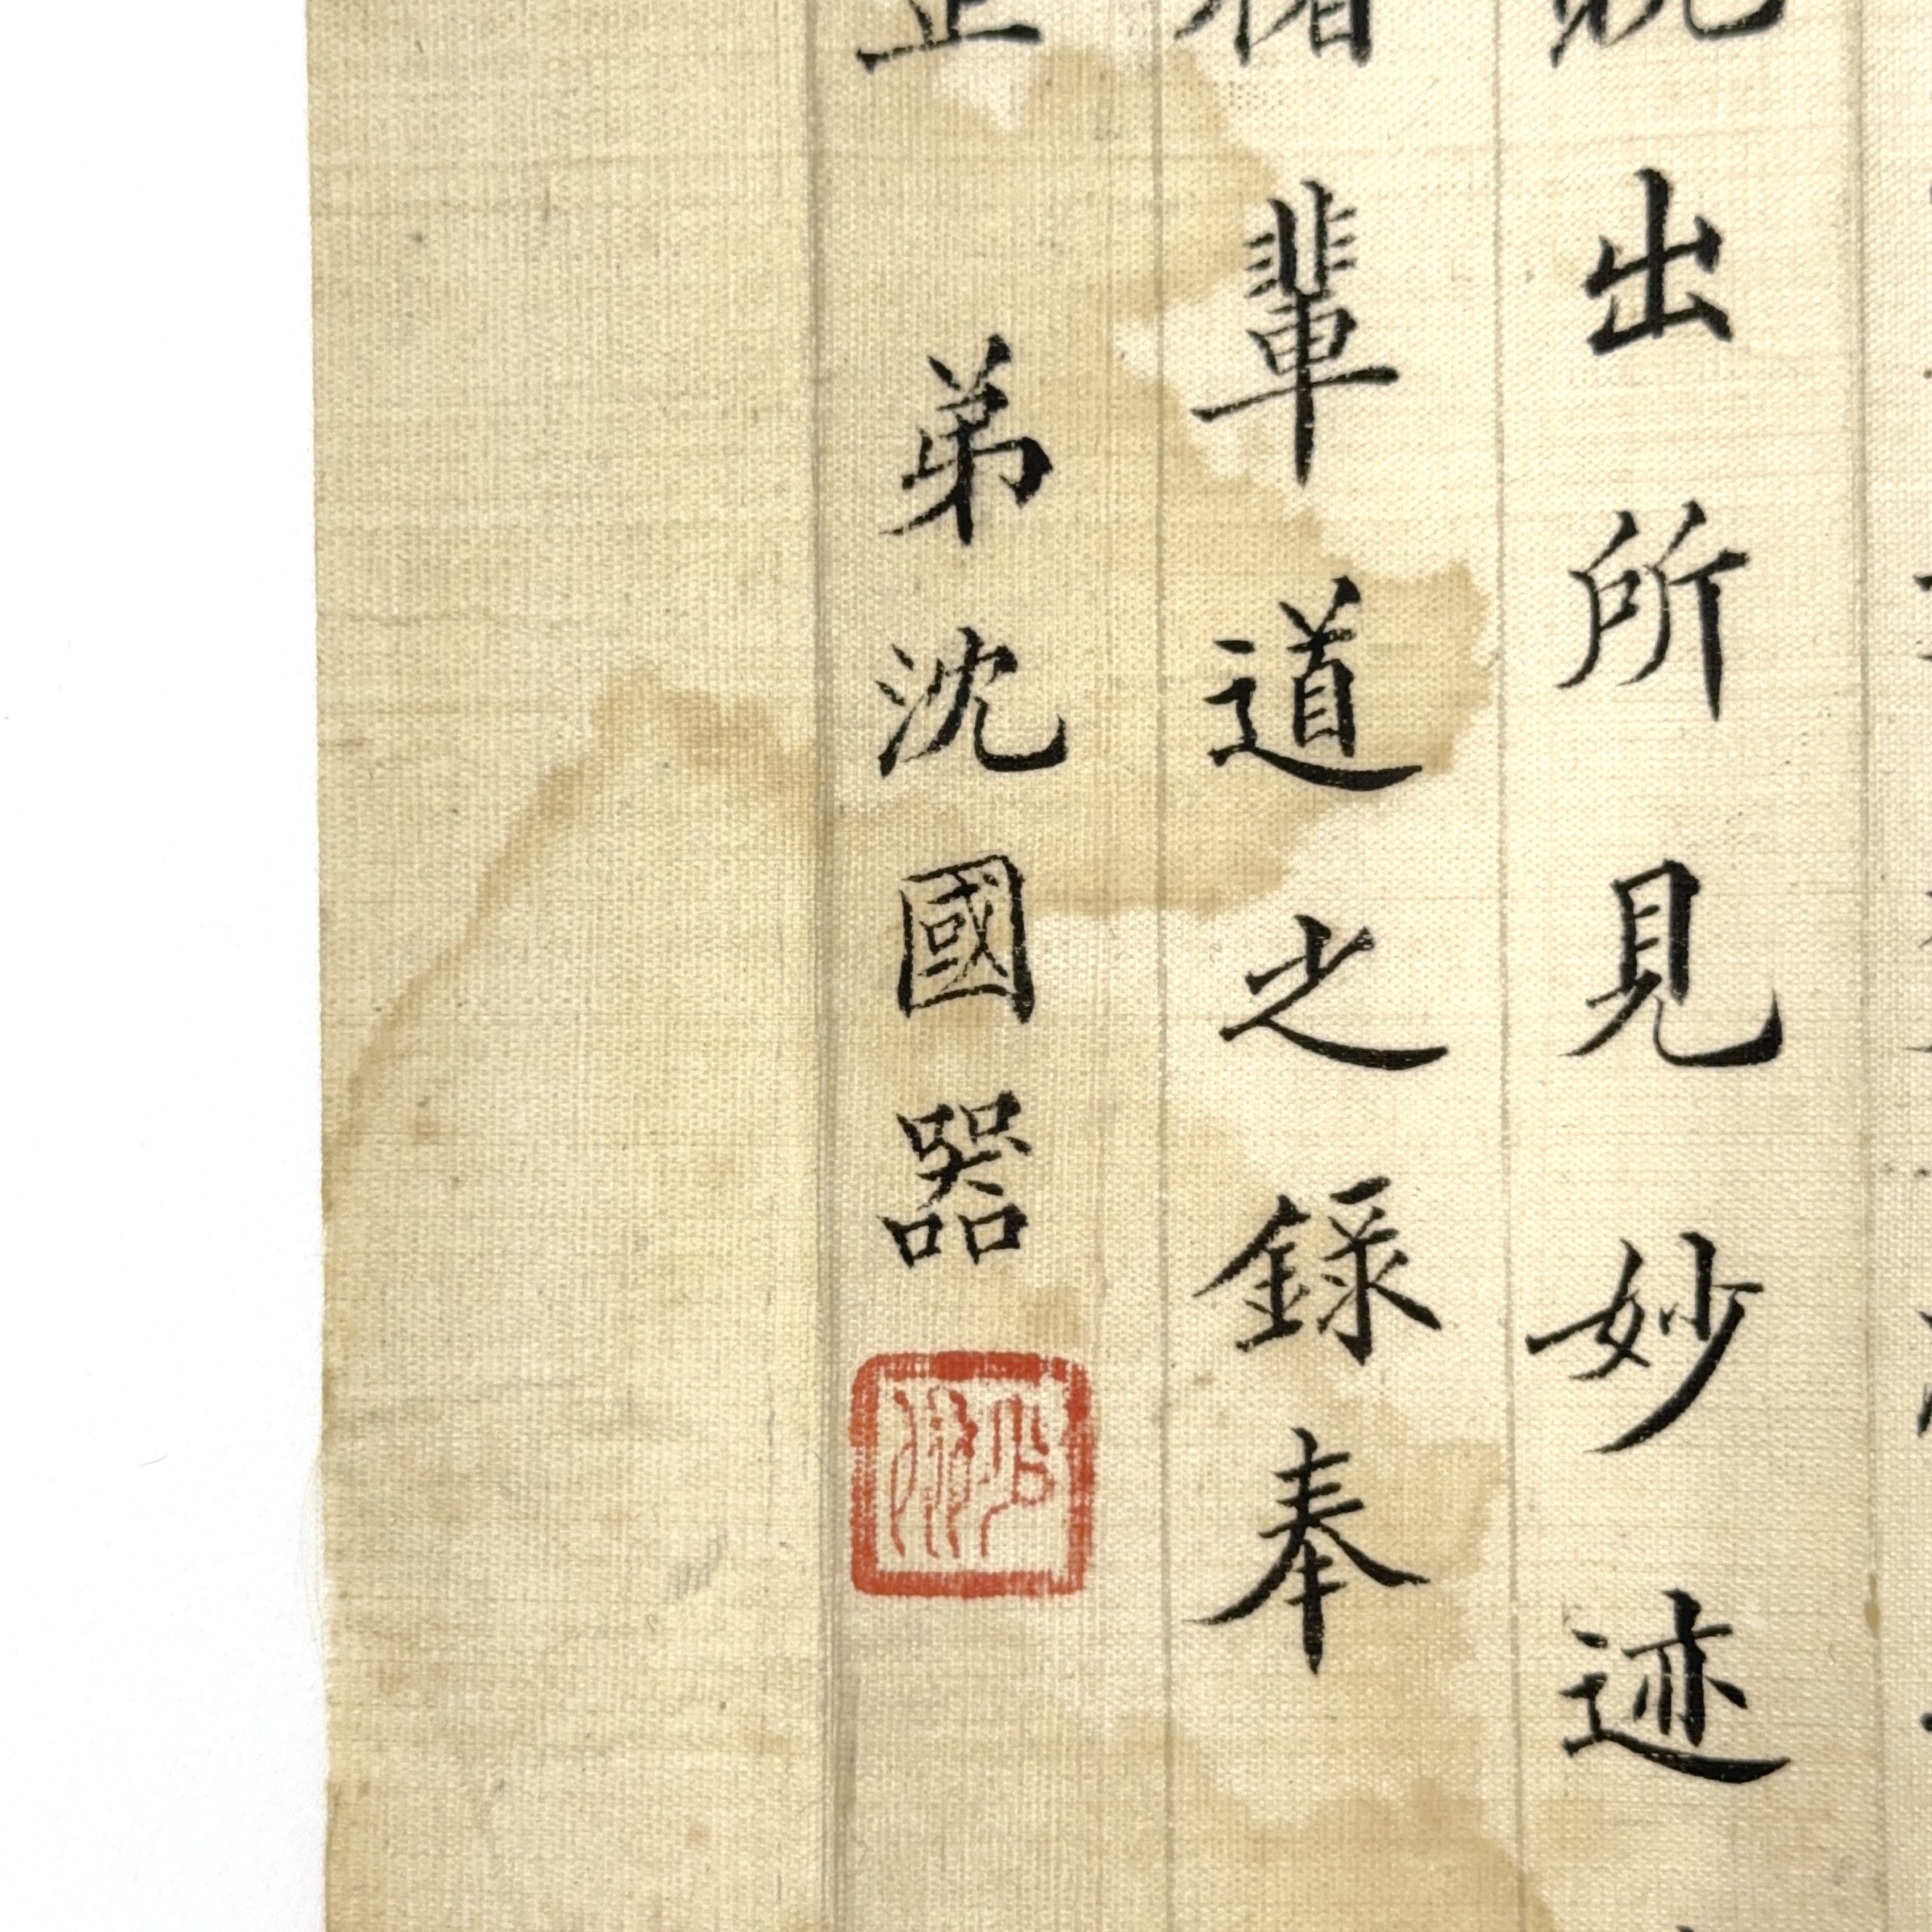 出所見妙迹
輩道之錄奉
正 弟沈國器